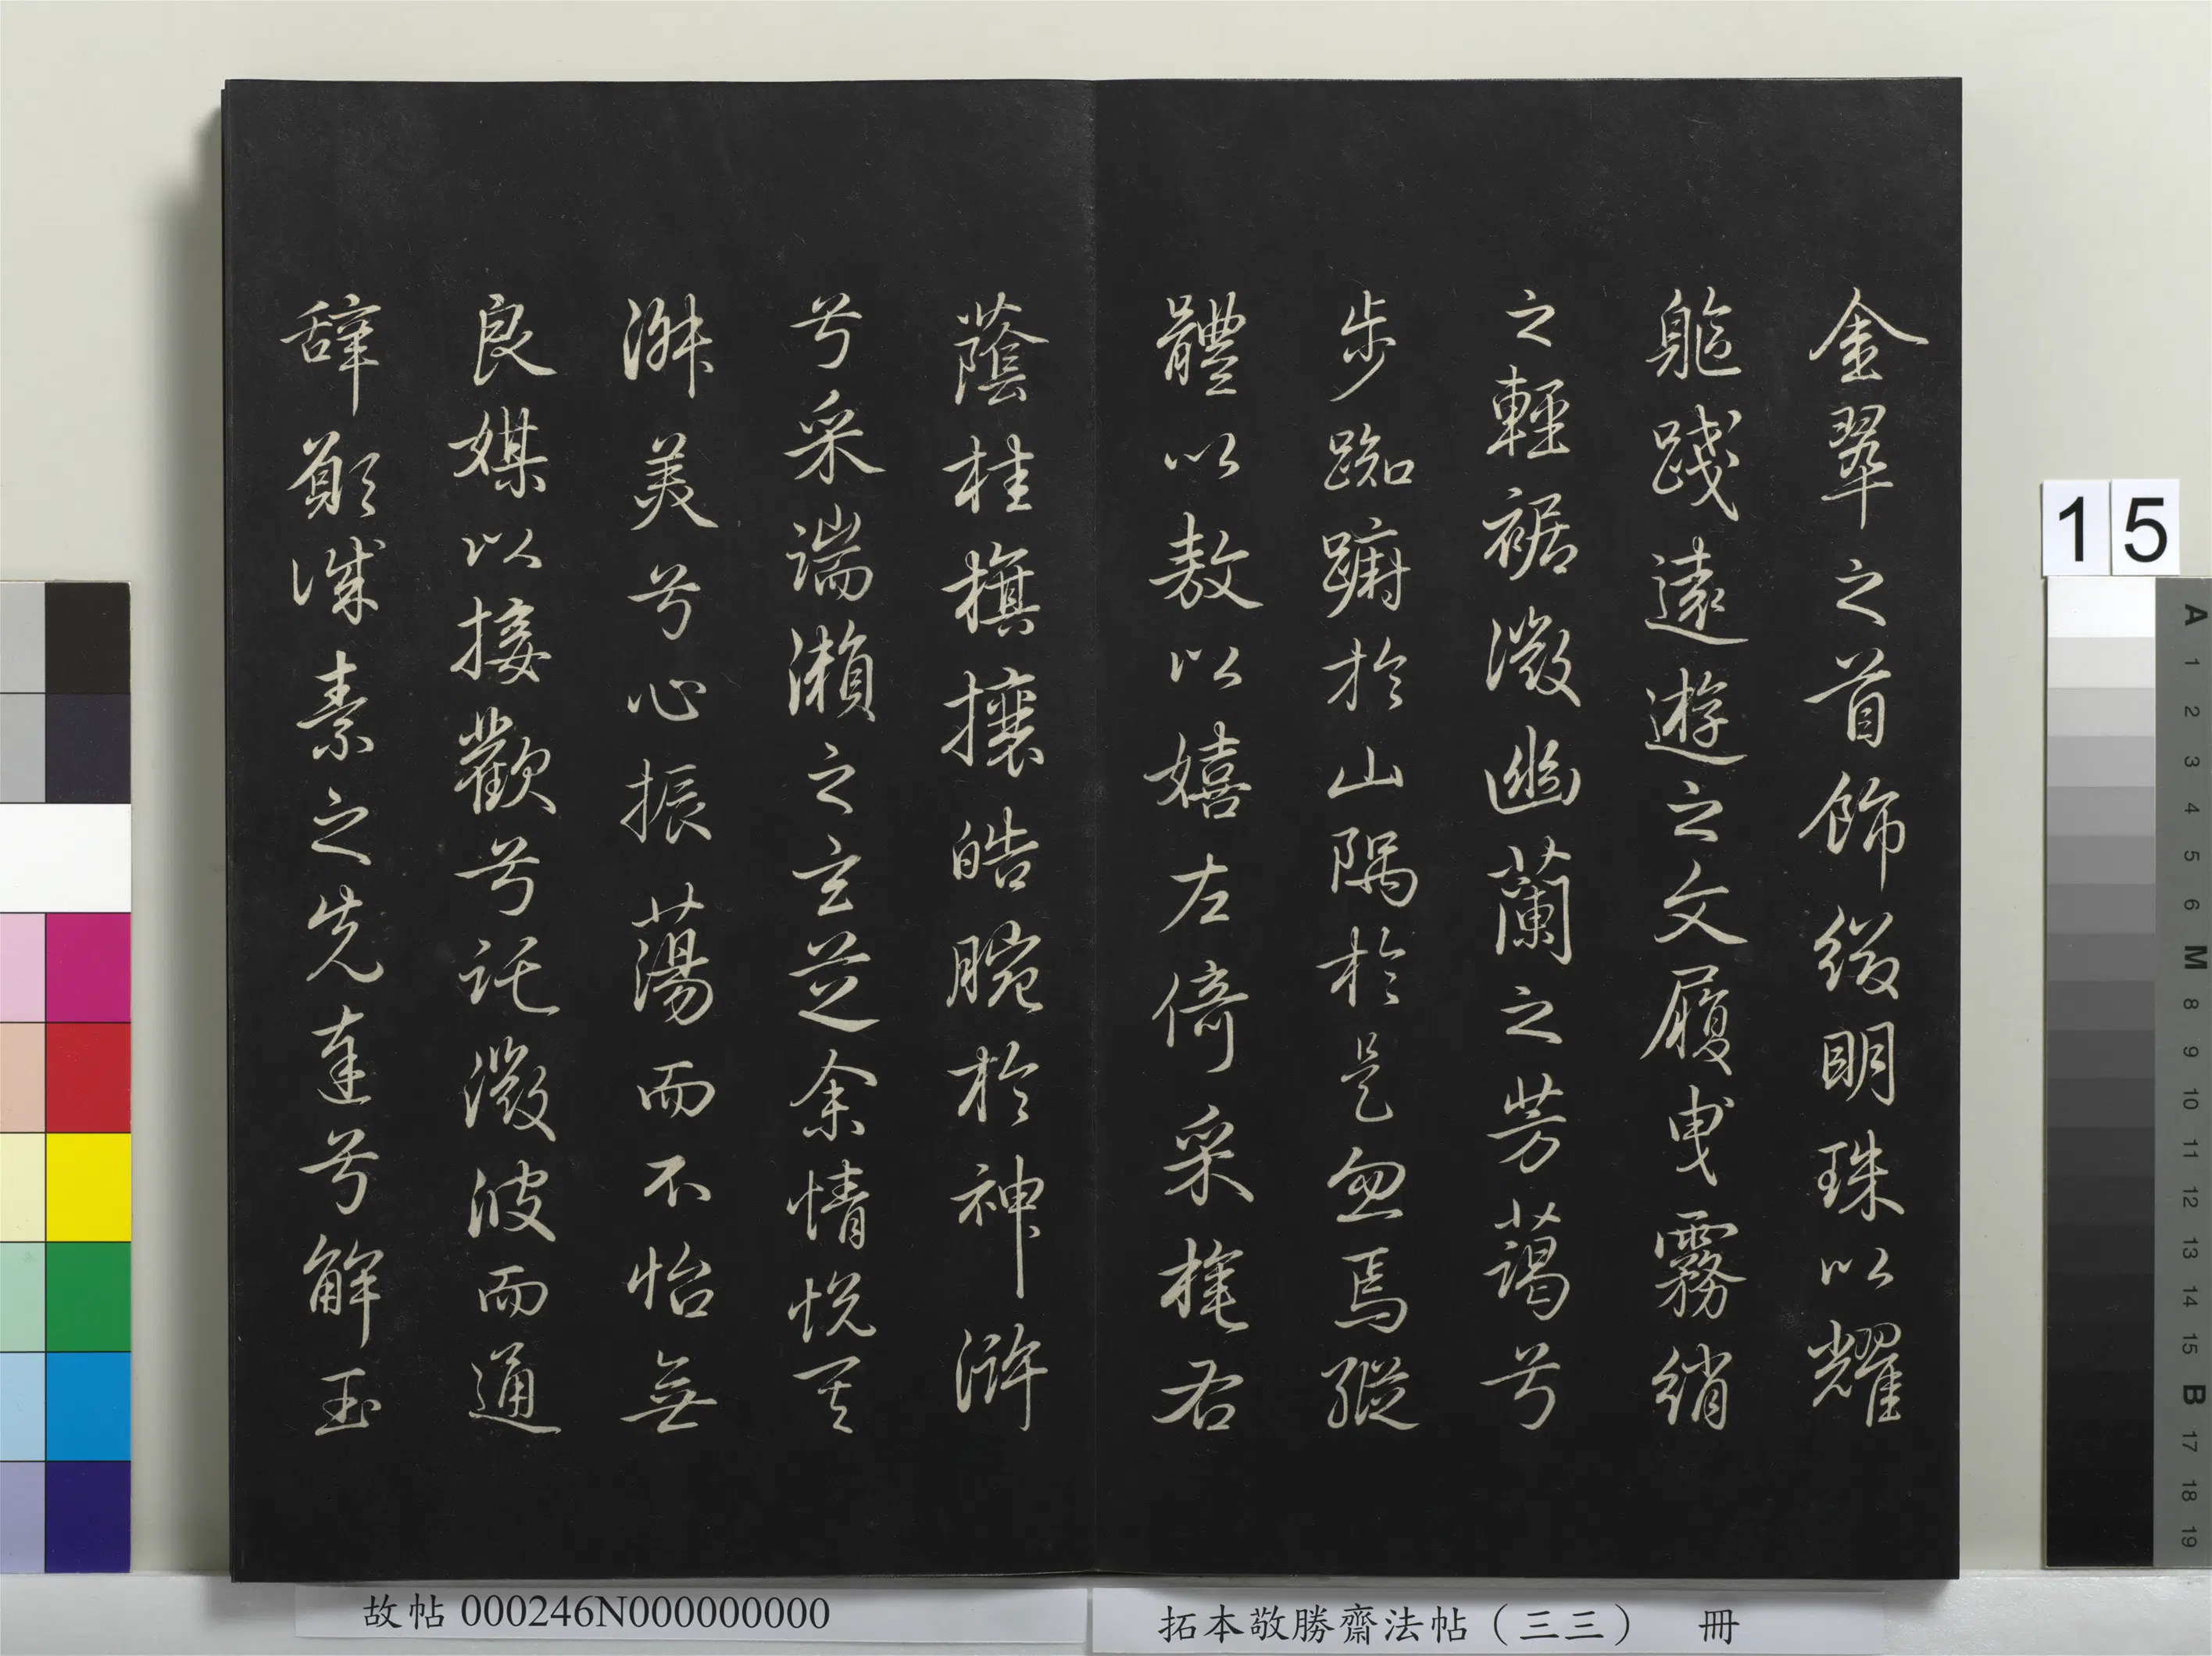 金翠之首飾綴明珠以耀
軀踐遠遊之文履曳霧綃
之輕裾微幽蘭之芳藹兮
步踟躕於山隅於是忽焉縱
體以敖以嬉左倚采旄右
蔭桂旗攘皓腕於神滸
兮采湍瀨之玄芝余情悅其
淑美兮心振蕩而不怡無
良媒以接歡兮託微波而通
辭願誠素之先達兮解玉
故帖 000246N000000000
拓本敬勝齋法帖（三三） 冊
15
A 1 2 3 4 5 6 M 8 9 10 11 12 13 14 15 B 17 18 19